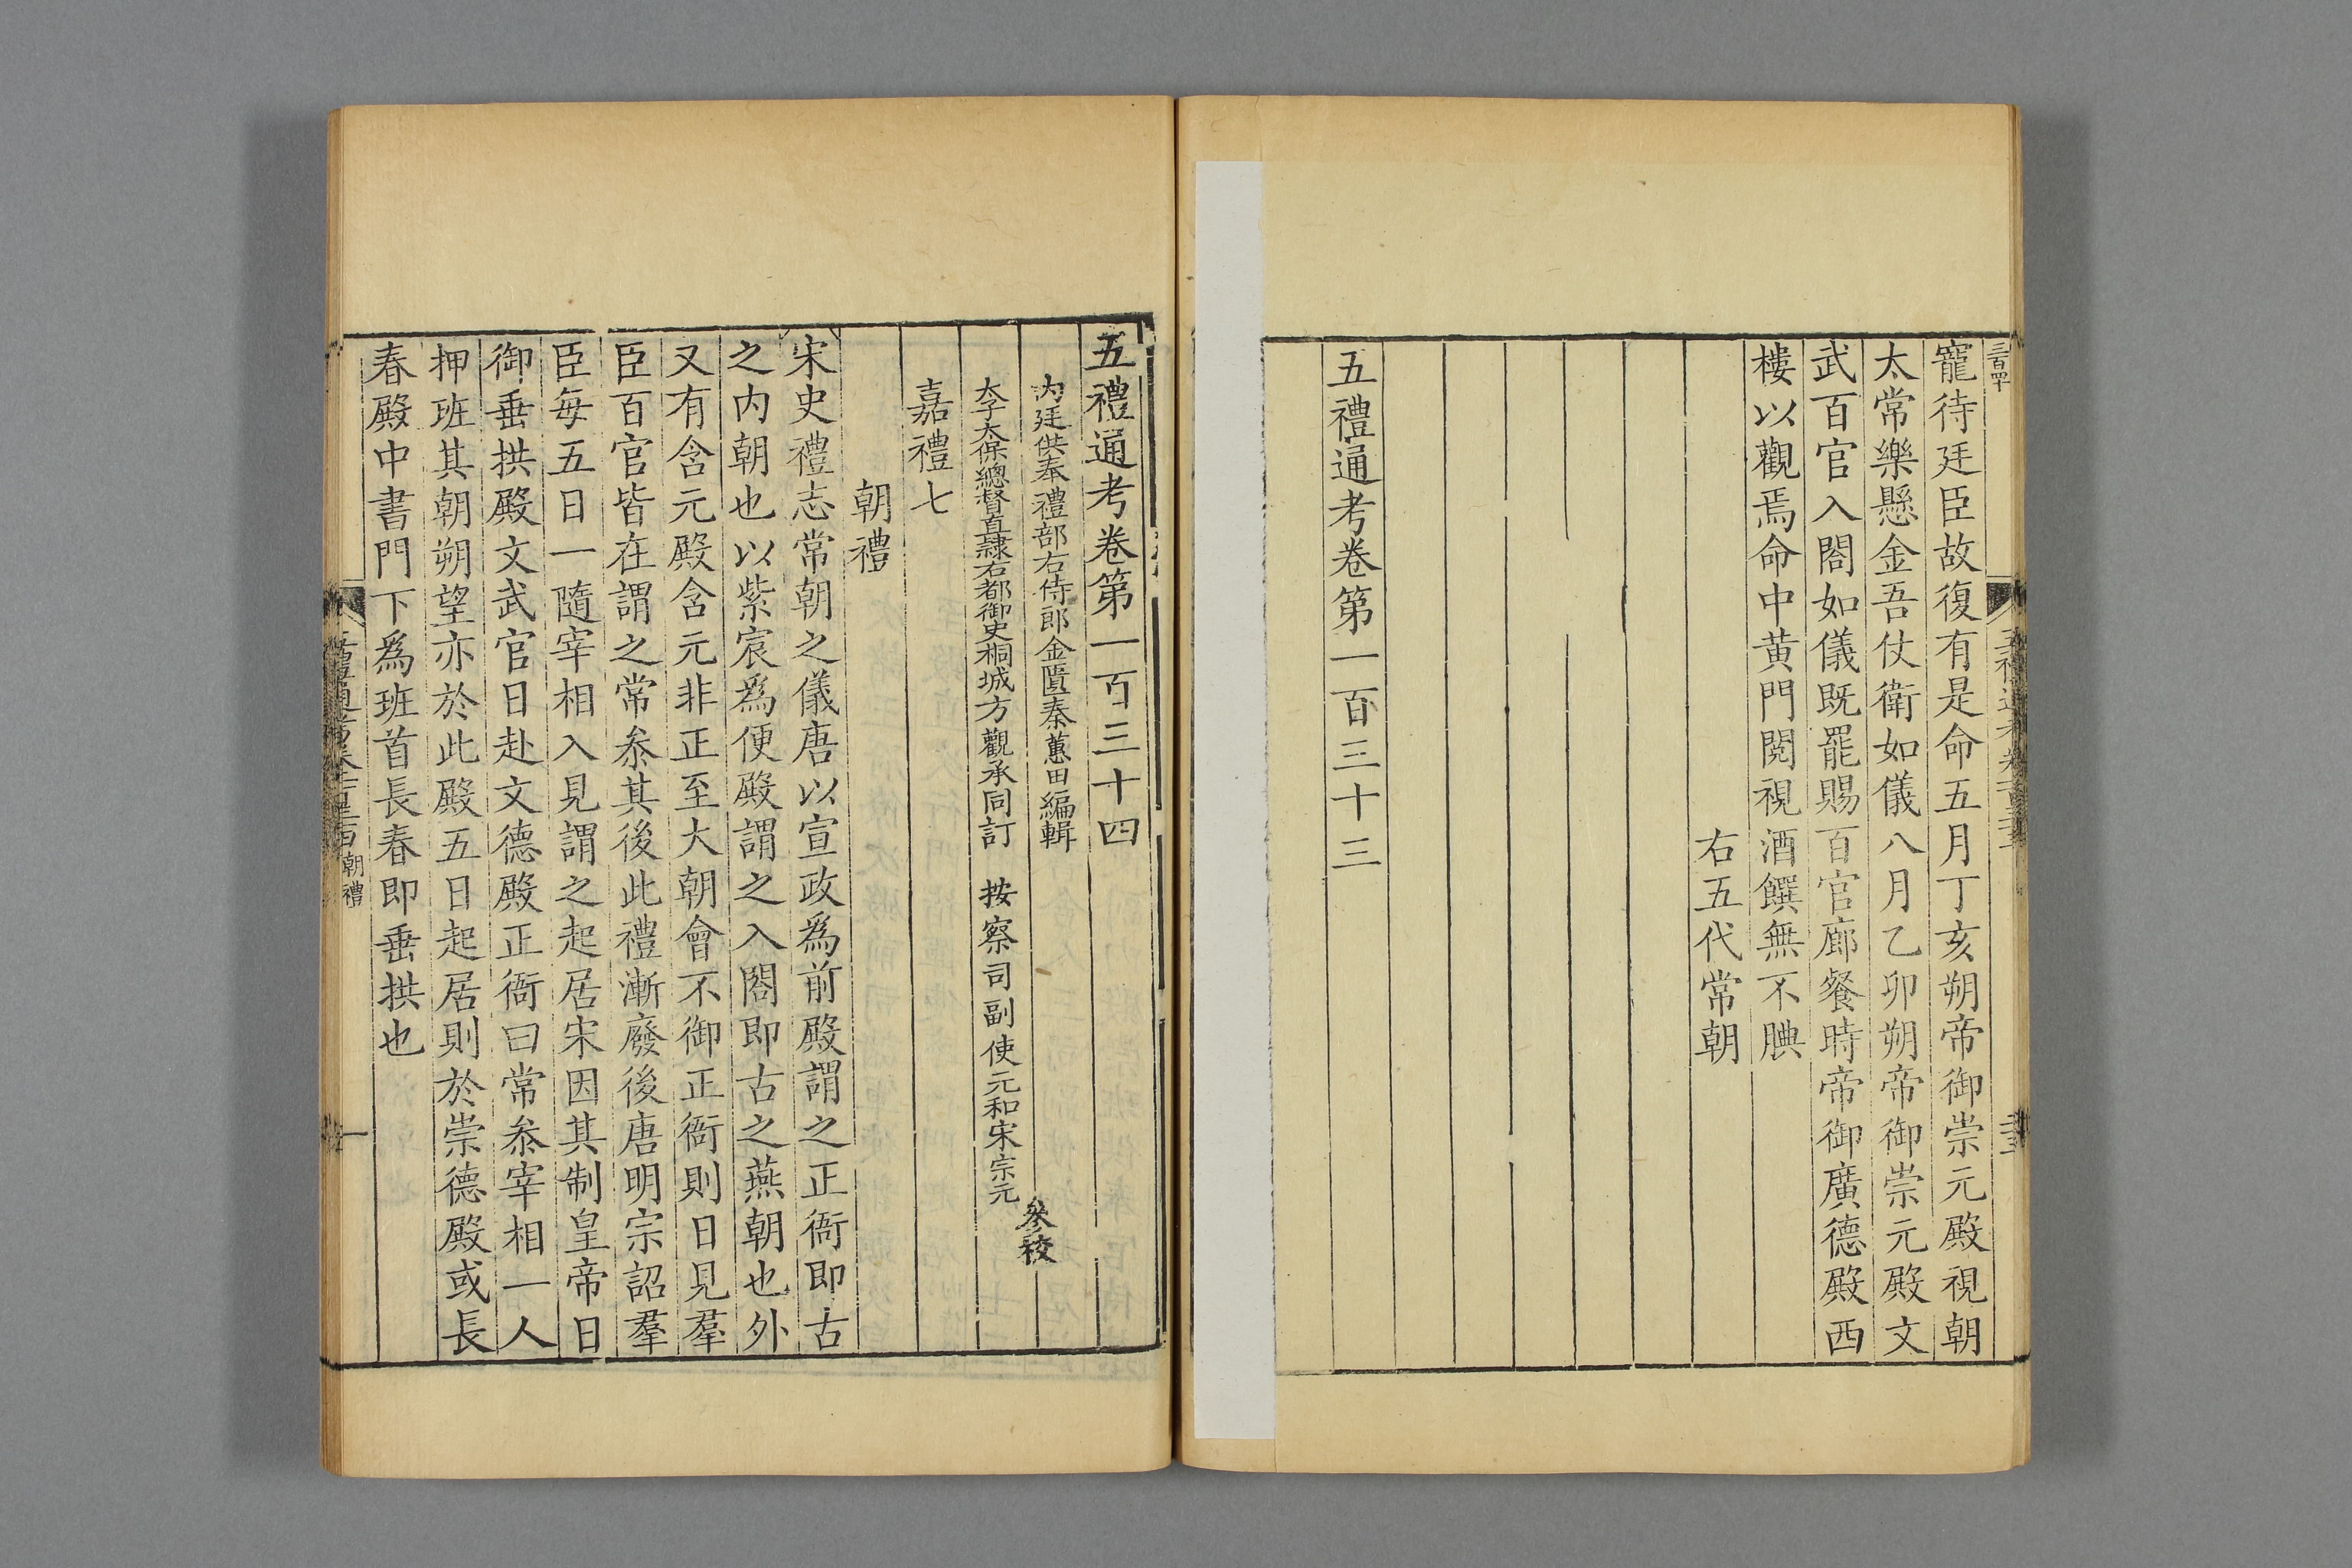 寵待廷臣故復有是命五月丁亥朔帝御崇元殿視朝
太常樂懸金吾仗衛如儀八月乙卯朔帝御崇元殿文
武百官入閤如儀既罷賜百官廊餐時帝御廣德殿西
樓以觀焉命中黃門閱視酒饌無不腆
右五代常朝
五禮通考卷第一百三十三
五禮通考卷第一百三十四
內廷供奉禮部右侍郎金匱秦蕙田編輯
太子太保總督直隸右都御史桐城方觀承同訂 按察司副使元和宋宗元
參校
嘉禮七
朝禮
宋史禮志常朝之儀唐以宣政爲前殿謂之正衙即古
之內朝也以紫宸爲便殿謂之入閤即古之燕朝也外
又有含元殿含元非正至大朝會不御正衙則日見羣
臣百官皆在謂之常叅其後此禮漸廢後唐明宗詔羣
臣每五日一隨宰相入見謂之起居宋因其制皇帝日
御垂拱殿文武官日赴文德殿正衙曰常叅宰相一人
押班其朝朔望亦於此殿五日起居則於崇德殿或長
春殿中書門下爲班首長春即垂拱也
朝禮
一